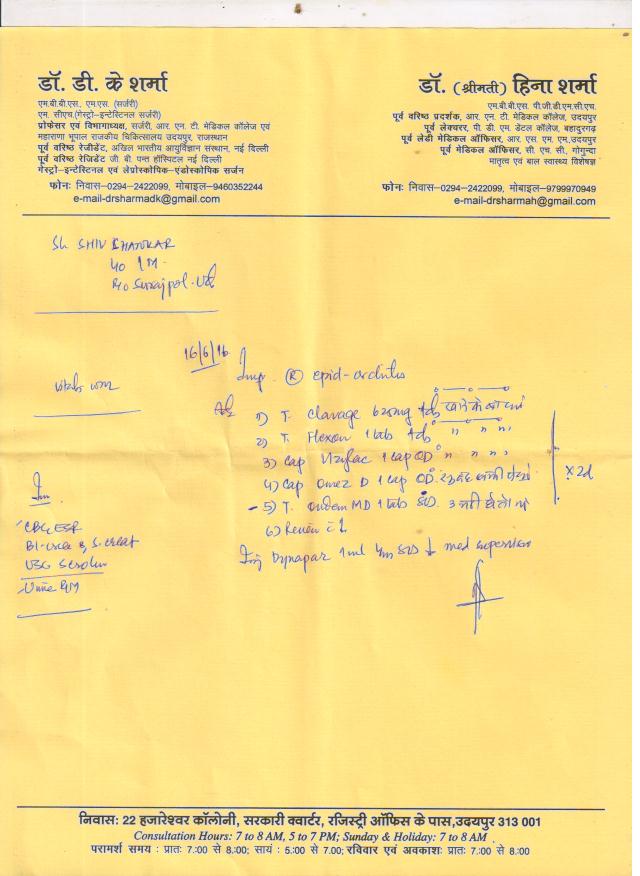 डॉ. डी. के शर्मा
एम.बी.बी.एस., एम.एस. (सर्जरी)
एम. सीएच.(गेस्ट्रो-इन्टेस्टिनल सर्जरी)
प्रोफेसर एवं विभागाध्यक्ष, सर्जरी, आर. एन. टी. मेडिकल कॉलेज एवं
महाराणा भूपाल राजकीय चिकित्सालय उदयपुर, राजस्थान
पूर्व वरिष्ठ रेजीडेंट, अखिल भारतीय आयुर्विज्ञान संस्थान, नई दिल्ली
पूर्व वरिष्ठ रेजिडेंट जी. बी. पन्त हॉस्पिटल नई दिल्ली
गेस्ट्रो-इन्टेस्टिनल एवं लेप्रोस्कोपिक-एंडोस्कोपिक सर्जन
फोनः निवास-0294-2422099, मोबाइल-9460352244
e-mail-drsharmadk@gmail.com
डॉ. (श्रीमती) हिना शर्मा
एम.बी.बी.एस. पी.जी.डी.एम.सी.एच.
पूर्व वरिष्ठ प्रदर्शक, आर. एन. टी. मेडिकल कॉलेज, उदयपुर
पूर्व लेक्चरर, पी. डी. एम. डेंटल कॉलेज, बहादुरगढ़
पूर्व लेडी मेडिकल ऑफिसर, आर. एस. एम. एम,उदयपुर
पूर्व मेडिकल ऑफिसर, सी. एच. सी., गोगुन्दा
मातृत्व एवं बाल स्वास्थ्य विशेषज्ञ
फोनः निवास-0294-2422099, मोबाइल-9799970949
e-mail-drsharmah@gmail.com
Sh SHIV SHANKAR
40 / M
R/o Surajpol
16/6/16
Imp. (R) epid-orchitis
Adv
1) T. Clavage 625mg tds खाने के बाद
2) T. Flexon 1 tab tds " " "
3) Cap Vizylac 1 cap OD " " "
4) Cap Omez D 1 cap OD
5) T. Ondem MD 1 tab
6) Review
x 2d
Inj Dynapar 1ml med supervision
Inv
CBC, ESR
Bl-urea & S.creat
USG Scrotum
Urine R/M
निवासः 22 हजारेश्वर कॉलोनी, सरकारी क्वार्टर, रजिस्ट्री ऑफिस के पास,उदयपुर 313 001
Consultation Hours: 7 to 8 AM, 5 to 7 PM; Sunday & Holiday: 7 to 8 AM
परामर्श समय : प्रातः 7:00 से 8:00; सायं : 5:00 से 7.00; रविवार एवं अवकाशः प्रातः 7:00 से 8:00